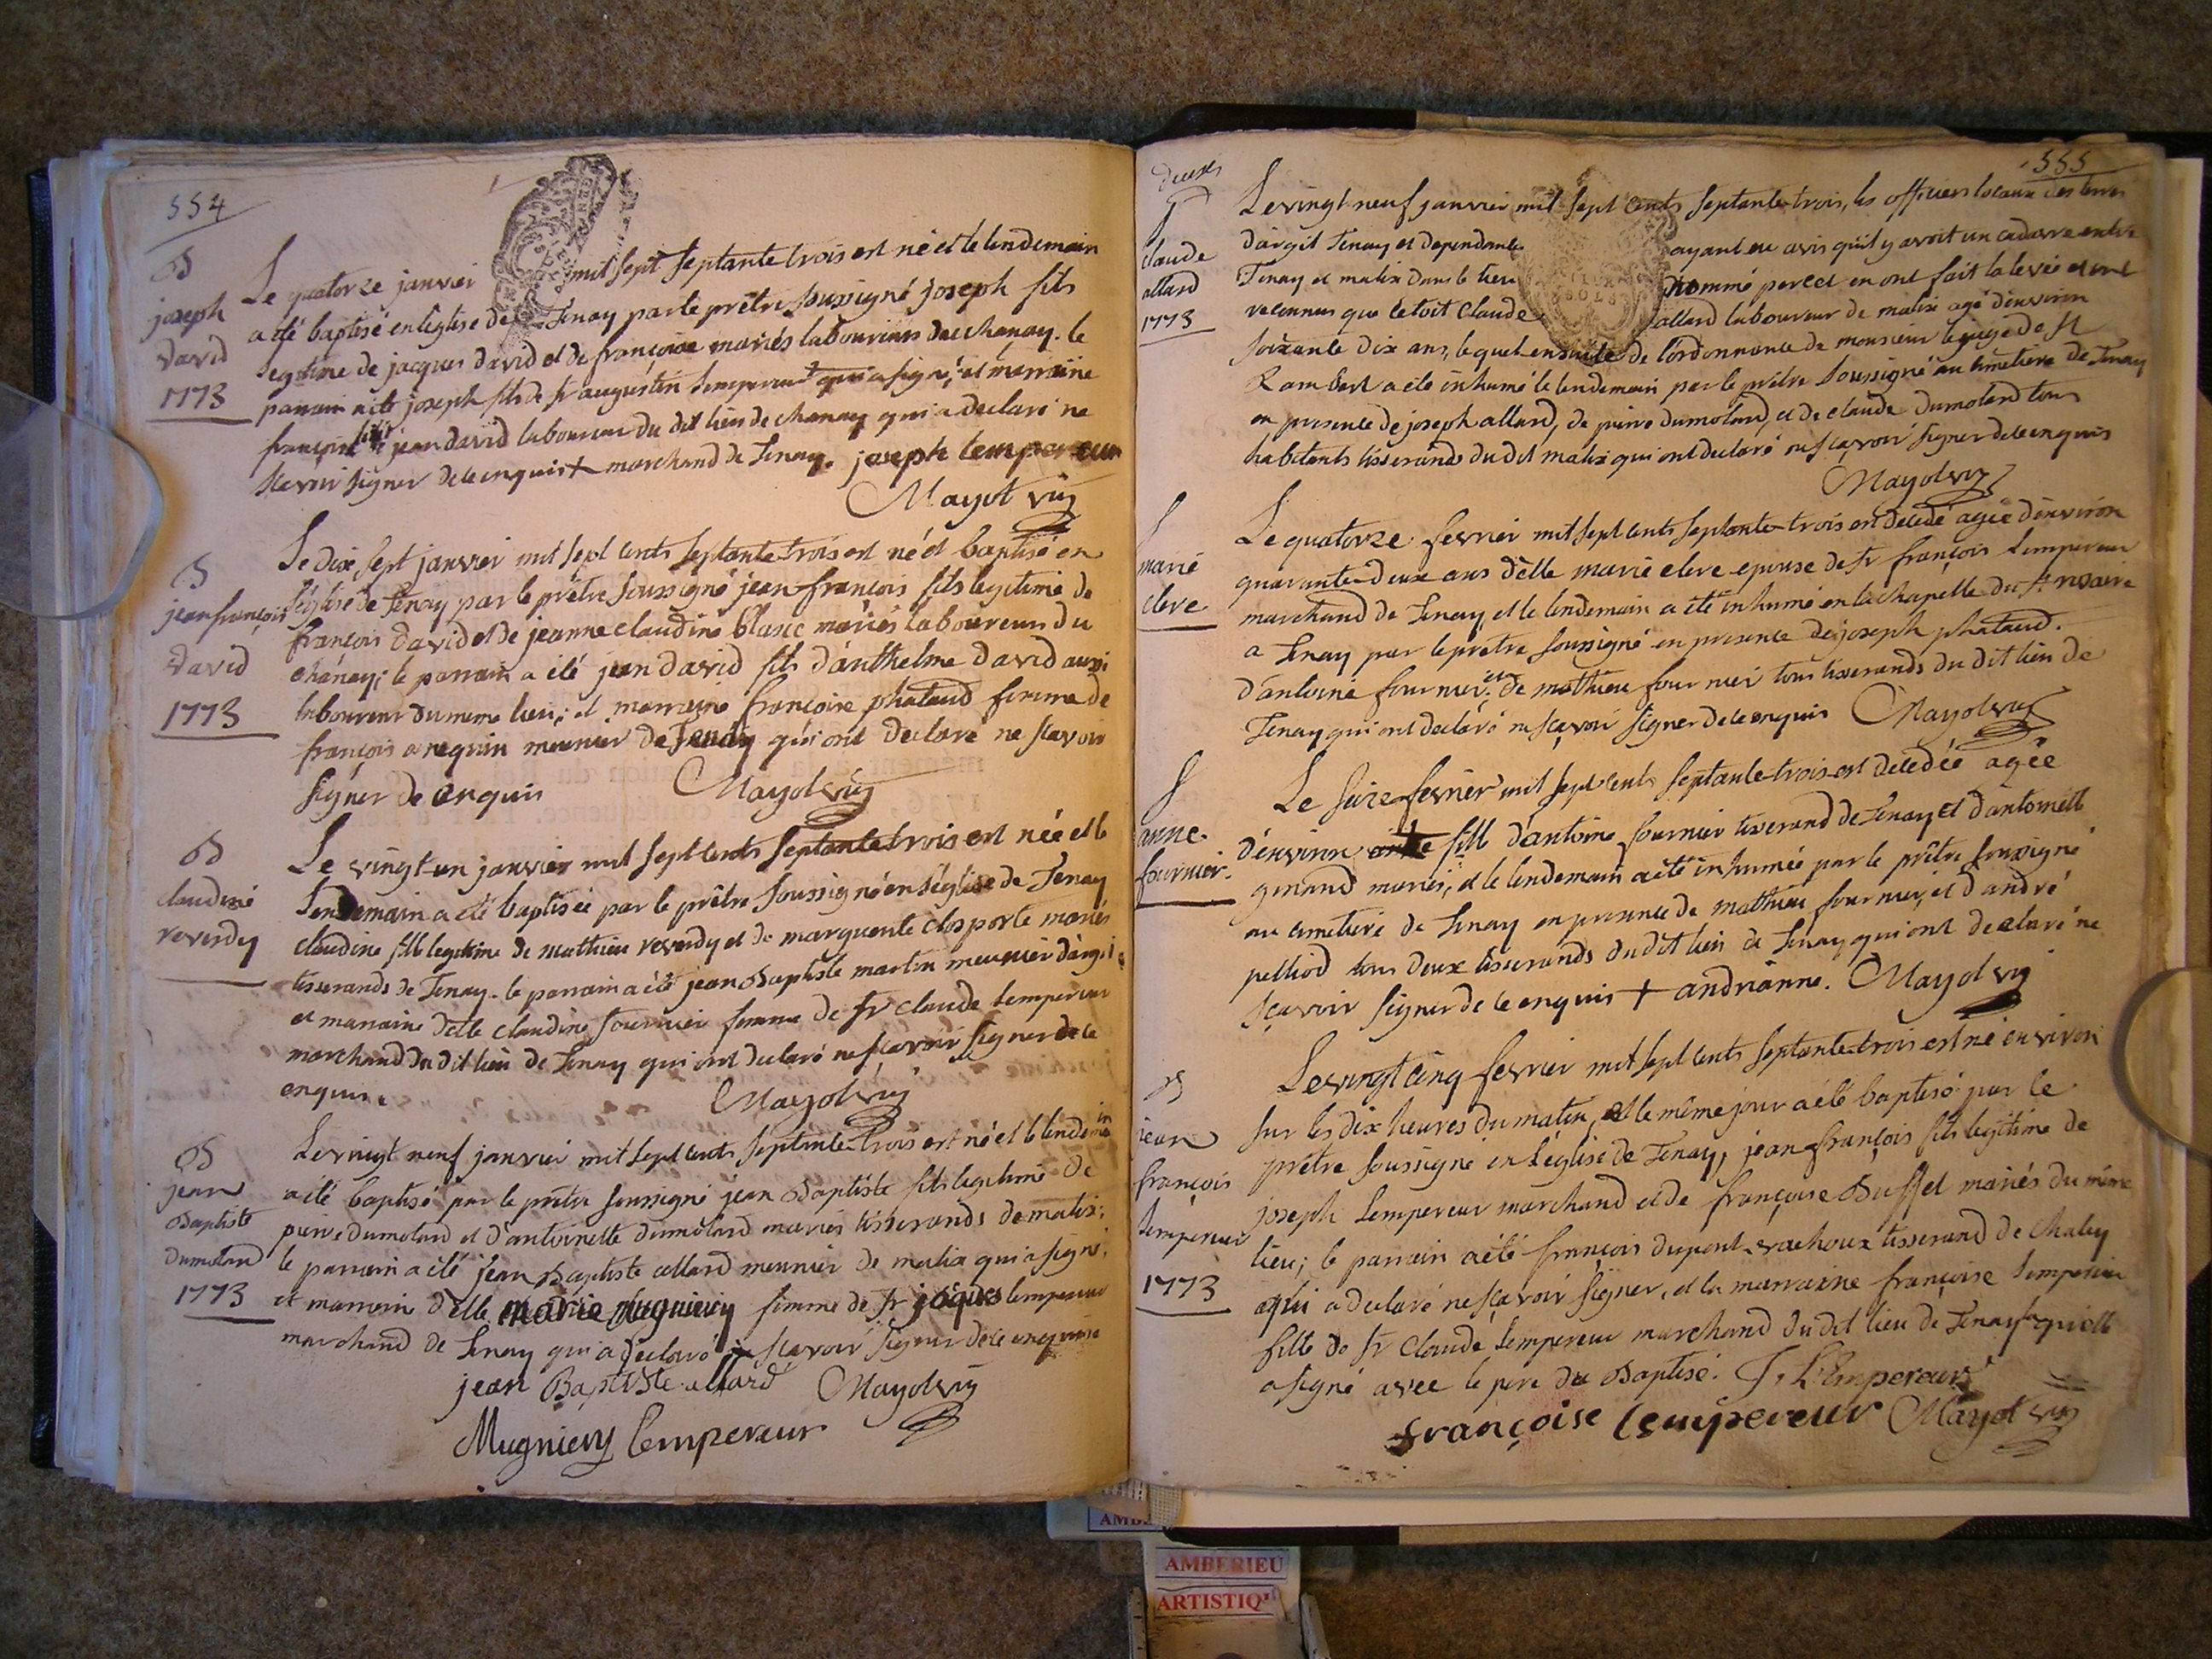 554
B
joseph
david
1773
Le quatorze janvier mil sept septante trois est né et le lendemain
a été baptisé en l'église de Tenay par le prêtre soussigné joseph fils
legitime de jacques david et de françoise mariés laboureurs de chanay. le
parrain a été joseph fils de sr augustin Lempereur qui a signé, et marraine
françoise jean david laboureur du dit lieu de chanay qui a declaré ne
scavoir signer de ce enquis + marchand de Tenay. joseph lempereur
Mayot vic
B
jean françois
david
1773
Le dix sept janvier mil sept cents septante trois est né et baptisé en
l'église de Tenay par le prêtre soussigné jean françois fils legitime de
françois david et de jeanne claudine blanc mariés laboureurs du
chanay; le parrain a été jean david fils d'anthelme david aussi
laboureur du meme lieu; et marraine françoise phataud femme de
françois a reguin meunier de Tenay qui ont declaré ne scavoir
signer de enquis Mayot vic
B
claudine
reverdy
Le vingt-un janvier mil sept cents septante trois est née et le
lendemain a été baptisée par le prêtre soussigné en l'église de Tenay
claudine fille legitime de mathieu reverdy et de marguerite closporte mariés
tisserands de Tenay. le parrain a été jean Baptiste martin meunier d'argis
et marraine delle claudine fournier femme de sr claude Lempereur
marchand du dit lieu de Tenay qui ont declaré ne scavoir signer de ce
enquis. Mayot vic
B
jean
Baptiste
dumolard
1773
Le vingt neuf janvier mil sept cents septante-trois est né et le lendemain
a été baptisé par le prêtre soussigné jean Baptiste fils legitime de
pierre dumolard et d'antoinette dumolard mariés tisserands de malix;
le parrain a été jean Baptiste allard meunier de malix qui a signé;
et marraine delle marie Mugniery femme de sr jaques lempereur
marchand de Tenay qui a declaré scavoir signer de ce enquise
jean Baptiste allard Mayot vic
Mugniery Lempereur
555
deux
S
claude
allard
1773
Le vingt neuf janvier mil sept cents septante-trois, les officiers locaux des terres
d'argit Tenay et dependante ayant eu avis qu'il y avoit un cadavre entre
Tenay et malix dans le lieu nommé percet en ont fait la levée et ont
reconnus que c'etoit Claude allard laboureur de malix agé d'environ
soixante dix ans, lequel ensuite de l'ordonnance de monsieur le juge de st
Rambert a été inhumé le lendemain par le prêtre soussigné au cimetiere de Tenay
en presence de joseph allard, de pierre dumolard, et de claude dumolard tous
habitants tisserands du dit malix qui ont declaré ne scavoir signer de ce enquis
Mayot vic
S
marie
cleve
Le quatorze fevrier mil sept cents septante-trois est decedé agée d'environ
quarante-deux ans d'elle marie cleve epouse de sr françois Lempereur
marchand de Tenay, et le lendemain a été inhumé en la chapelle du st rosaire
a Tenay par le prêtre soussigné en presence de joseph phataud.
d'antoine fournier, et de mathieu fournier tous tisserands du dit lieu de
Tenay qui ont declaré ne scavoir signer de ce enquis Mayot vic
S
anne
fournier
Le seize fevrier mil sept cents septante-trois est decedée agée
d'environ fille d'antoine fournier tisserand de Tenay et d'antoinette
genand mariés, et le lendemain a été inhumée par le prêtre soussigné
au cimetiere de Tenay en presence de mathieu fournier, et d'andré
pelliod tous deux tisserands du dit lieu de Tenay qui ont declaré ne
scavoir signer de ce enquis + andrianne. Mayot vic
B
jean
françois
Lempereur
1773
Le vingt cinq fevrier mil sept cents septante-trois est né environ
sur les dix heures du matin, et le même jour a été baptisé par le
prêtre soussigné en l'église de Tenay, jean françois fils legitime de
joseph Lempereur marchand et de françoise Buffet mariés du même
lieu; le parrain a été françois dupont-vachoux tisserand de Chaley
qui a declaré ne scavoir signer, et la marraine françoise Lempereur
fille de sr Claude Lempereur marchand du dit lieu de Tenay laquelle
a signé avec le pere du Baptisé. J. L'Empereur
françoise Lempereur Mayot vic
AMBERIEU
ARTISTIQ